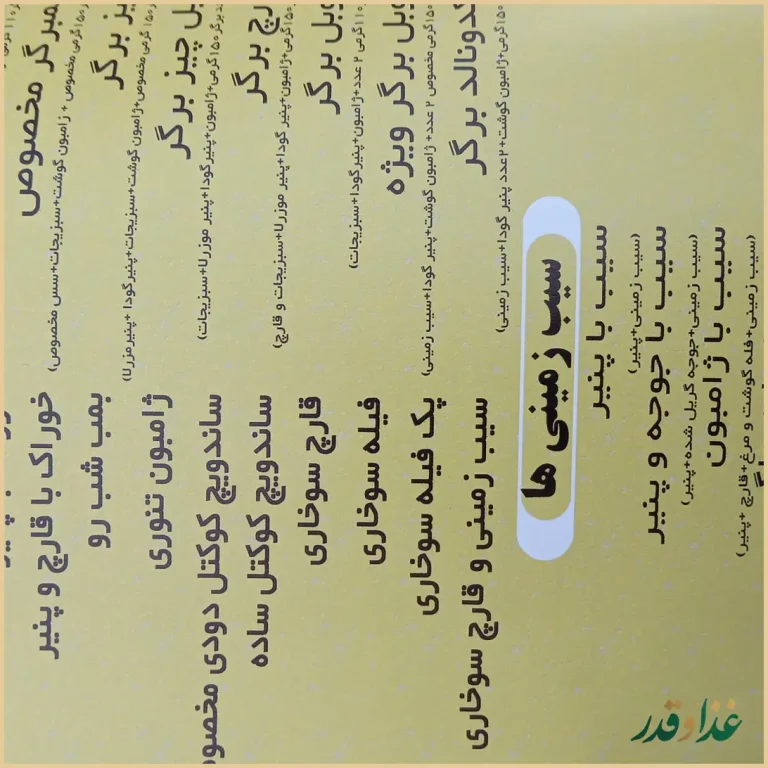 همبرگر مخصوص
۱۵۰ گرمی مخصوص + ژامبون گوشت+سبزیجات+سس مخصوص)
برگر
۱۵۰گرمی مخصوص+ژامبون گوشت+سبزیجات+پنیرگودا +پنیرمزرلا)
چیز برگر
۱۵۰گرمی+ژامبون+پنیرگودا+پنیر موزرلا+سبزیجات)
برگر
۱۵۰گرمی+ژامبون+پنیر گودا+پنیر موزرلا+سبزیجات و قارچ)
برگر
۱۱۰گرمی ۲ عدد+ژامبون+پنیرگودا+سبزیجات)
برگر ویژه
۱۵۰گرمی مخصوص ۲ عدد+ ژامبون گوشت+پنیر گودا+سیب زمینی)
مکدونالد برگر
۱۵۰گرمی+ژامبون گوشت+۲عدد پنیر گودا+سیب زمینی)
خوراک با قارچ و پنیر
بمب شب رو
ژامبون تنوری
ساندویچ کوکتل دودی
ساندویچ کوکتل ساده
قارچ سوخاری
فیله سوخاری
پک فیله سوخاری
سیب زمینی و قارچ سوخاری
سیب زمینی ها
سیب با پنیر
(سیب زمینی+پنیر)
سیب با جوجه و پنیر
(سیب زمینی+جوجه گریل شده+پنیر)
سیب با ژامبون
(سیب زمینی+فله گوشت و مرغ+قارچ +پنیر)
غذا و قدر